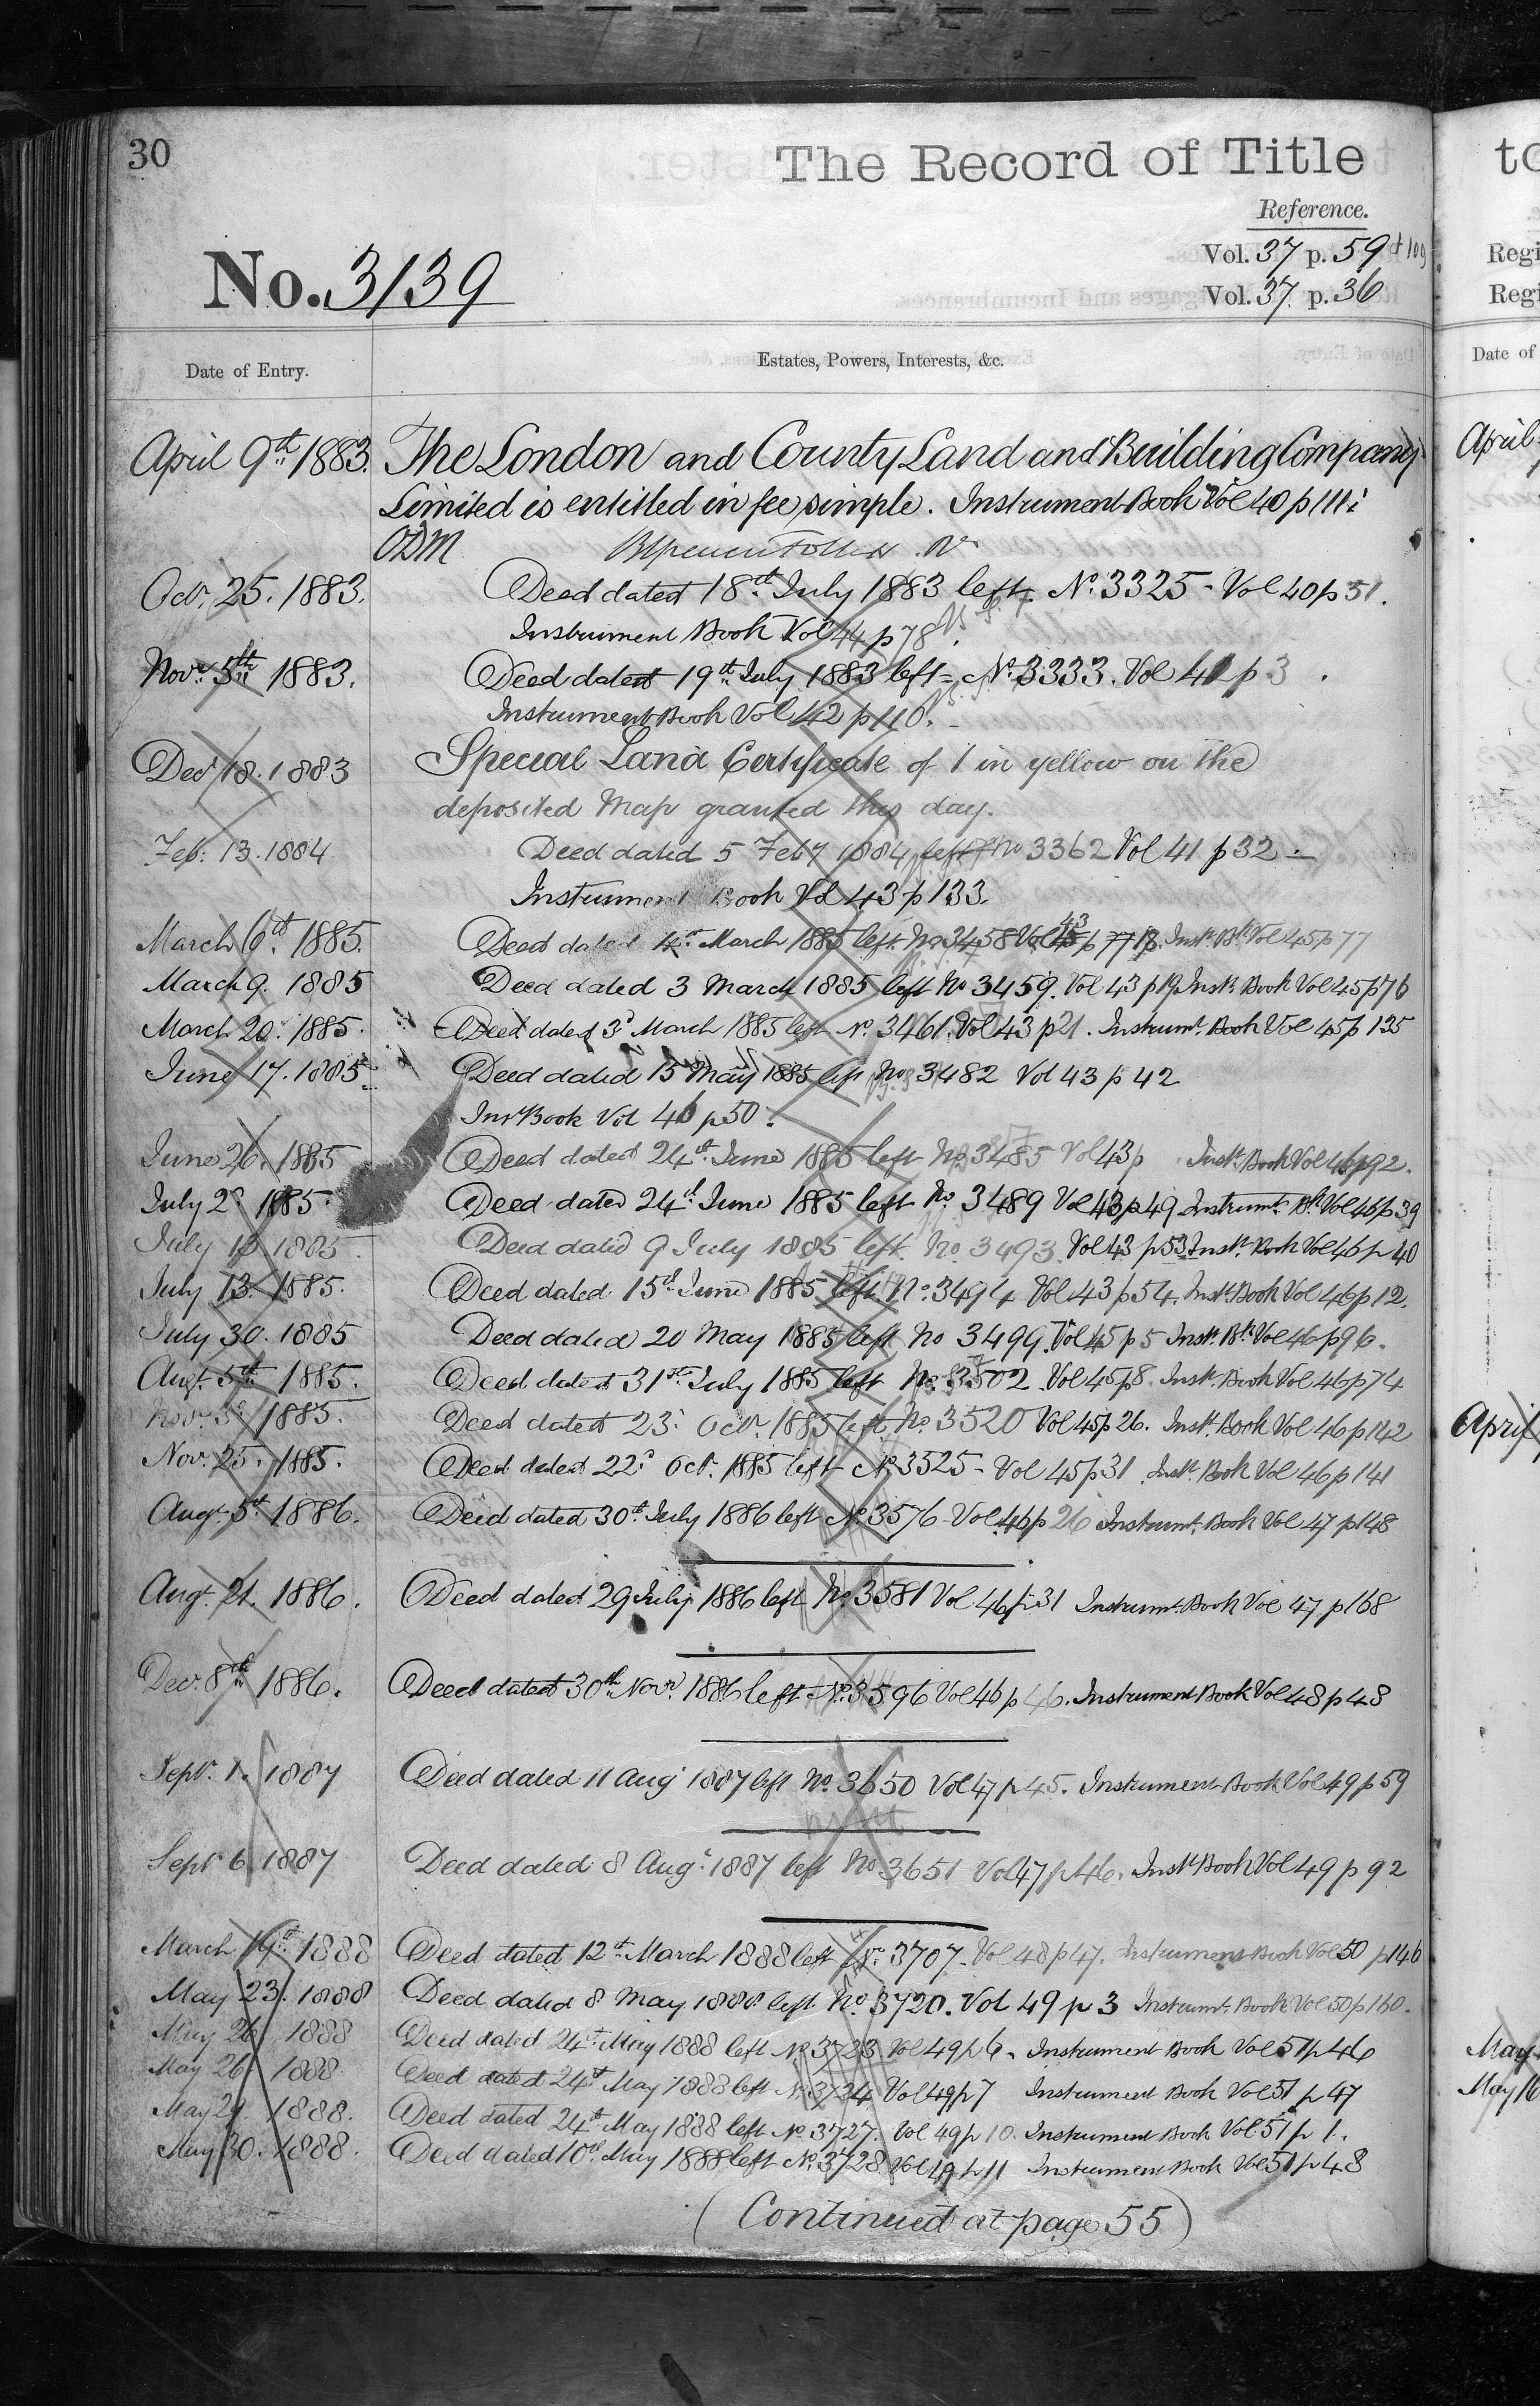 30
The Record of Title
Reference.
No. 3139
Vol. 37 p. 59 & 109
Vol. 37 p. 36
Date of Entry.
Estates, Powers, Interests, &c.
April 9th 1883. The London and County Land and Building Company
Limited is entitled in fee simple. Instrument Book Vol 40 p 111
Octr. 25. 1883. Deed dated 18th July 1883 left. No. 3325 - Vol 40 p 51.
Instrument Book Vol 44 p 78.
Novr. 5th 1883. Deed dated 19th July 1883 left - No. 3333. Vol 41 p 3
Instrument Book Vol 42 p 110.
Decr 18. 1883 Special Land Certificate of 1 in yellow on the
deposited Map granted this day.
Feb: 13. 1884 Deed dated 5 Feby 1884 left No 3362 Vol 41 p 32
Instrument Book Vol 43 p 133.
March 6th. 1885. Deed dated 4th March 1885 left. No. 3458 Vol 43 p 18. Inst. Bk Vol 45 p 77
March 9. 1885 Deed dated 3 March 1885 left No 3459. Vol 43 p 19 Inst. Book Vol 45 p 76
March 20. 1885. Deed dated 3d March 1885 left No. 3461. Vol 43 p 21. Instrumt. Book Vol 45 p 135
June 17. 1885. Deed dated 15 May 1885 left No 3482 Vol 43 p 42
Inst Book Vol 46 p 50.
June 26. 1885 Deed dated 24th June 1885 left No 3485 Vol 43 p Inst. Book Vol 46 p 92.
July 2d 1885. Deed dated 24th June 1885 left No. 3489 Vol 43 p 49 Instrumt. Bk Vol 46 p 39
July 1885. Deed dated 9 July 1885 left No 3493. Vol 43 p 53 Inst. Book Vol 46 p 40
July 13. 1885. Deed dated 15th June 1885 left. No. 3494 Vol 43 p 54. Inst. Book Vol 46 p 12.
July 30. 1885 Deed dated 20 May 1885 left No 3499. Vol 45 p 5 Inst. Bk Vol 46 p 96.
Augt. 5th 1885. Deed dated 31st July 1885 left No. 3502. Vol 45 p 8. Inst. Book Vol 46 p 74
Novr. 3d 1885. Deed dated 23d Octr. 1885 left No. 3520 Vol 45 p 26. Inst. Book Vol 46 p 142
Nov. 25. 1885. Deed dated 22d Oct. 1885 left - No 3525 - Vol 45 p 31 Inst. Book Vol 46 p 141
Augt. 5th 1886. Deed dated 30th July 1886 left No 3576 - Vol 46 p 26 Instrumt. Book Vol 47 p 148
Augt. 21. 1886. Deed dated 29 July 1886 left No. 3581 Vol 46 p 31 Instrumt. Book Vol 47 p 168
Decr. 8th 1886. Deed dated 30th Novr. 1886 left - No. 3596 Vol 46 p 46. Instrument Book Vol 48 p 48
Septr. 1. 1887 Deed dated 11 Augt 1887 left No. 3650 Vol 47 p 45. Instrument Book Vol 49 p 59
Septr 6. 1887 Deed dated 8 Augt. 1887 left No. 3651 Vol 47 p 46. Inst. Book Vol 49 p 92
March 14th. 1888 Deed dated 12th March 1888 left No. 3707. Vol 48 p 47. Instrument Book Vol 50 p 146
May 23. 1888 Deed dated 8 May 1888 left No. 3720. Vol 49 p 3 Instrumt. Book Vol 50 p 160.
May 26. 1888 Deed dated 24th May 1888 left No 3723 Vol 49 p 6. Instrument Book Vol 51 p 46
May 26. 1888. Deed dated 24th May 1888 left No 3724 Vol 49 p 7 Instrument Book Vol 51 p 47
May 29. 1888. Deed dated 24th May 1888 left No 3727. Vol 49 p 10. Instrument Book Vol 51 p 1.
May 30. 1888. Deed dated 10th May 1888 left No. 3728 Vol 49 p 11 Instrument Book Vol 51 p 48
(Continued at page 55)